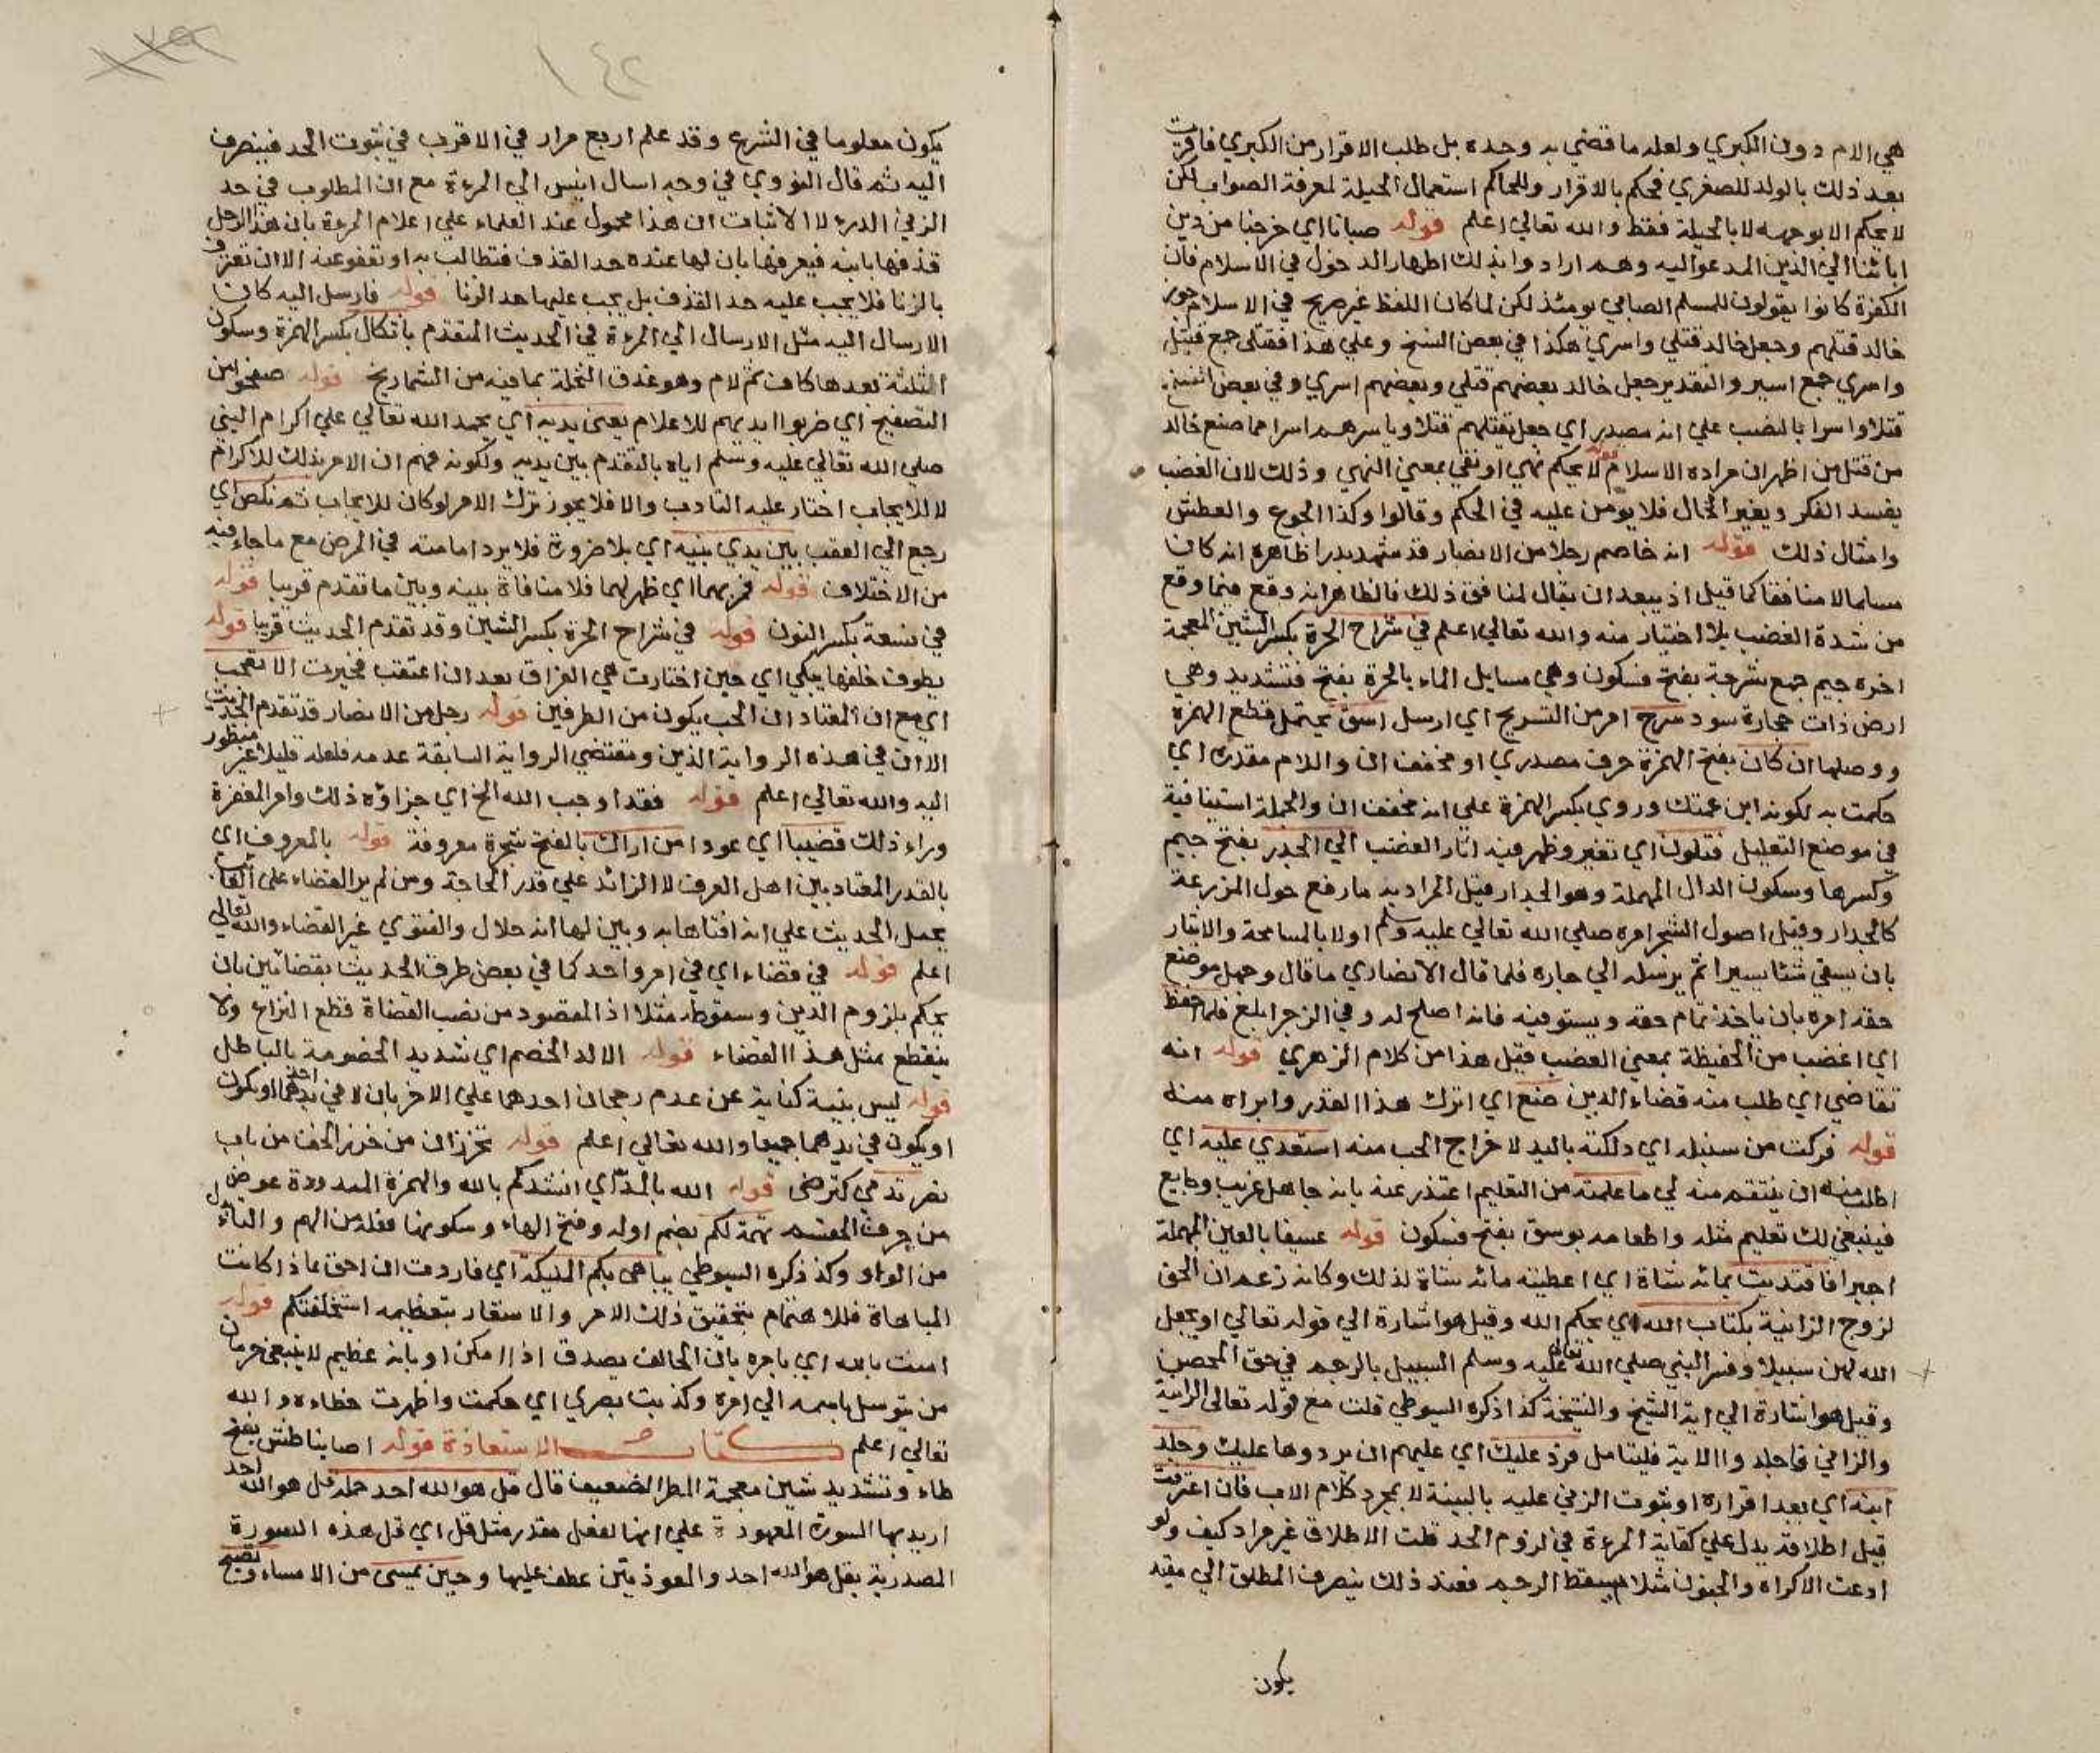 هي الام دون الكبري ولعله ما قضي به وحده بل طلب الاقرار من الكبري فاقرت
بعد ذلك بالولد للصغري فحكم بالاقرار وللحاكم استعمال الحيلة لمعرفة الصواب لكن
لا يحكم الا بوجهه لا بالحيلة فقط والله تعالي اعلم قوله صبانا اي خرجنا من دين
ابائنا الي الدين المدعو اليه وهم ارادوا بذلك اظهار الدخول في الاسلام فان
الكفرة كانوا يقولون للمسلم الصابي يومئذ لكن لما كان اللفظ غير صريح في الاسلام جوز
خالد قتلهم وجعل خالد قتلي واسري هكذا في بعض النسخ وعلي هذا فقتلي جمع قتيل
واسري جمع اسير والتقدير جعل خالد بعضهم قتلي وبعضهم اسري وفي بعض النسخ
قتلا واسرا بالنصب علي انه مصدر اي جعل يقتلهم قتلا وياسرهم اسرا مما صنع خالد
من قتل من اظهر ان مراده الاسلام قوله لا يحكم نهي او نفي بمعني النهي وذلك لان الغضب
يفسد الفكر ويغير الحال فلا يؤمن عليه في الحكم وقالوا وكذا الجوع والعطش
وامثال ذلك قوله انه خاصم رجلا من الانصار قد شهد بدرا ظاهره انه كان
مسلما لا منافقا كما قيل اذ يبعد ان يقال لمنافق ذلك فالظاهر انه وقع فيما وقع
من شدة الغضب بلا اختيار منه والله تعالي اعلم في شراج الحرة بكسر الشين المعجمة
اخره جيم جمع شرجة بفتح فسكون وهي مسايل الماء بالحرة بفتح فتشديد وهي
ارض ذات حجارة سود سرح امر من التسريح اي ارسل اسق يحتمل قطع الهمزة
ووصلها ان كان بفتح الهمزة حرف مصدري او مخفف ان واللام مقدرة اي
حكمت به لكونه ابن عمتك وروي بكسر الهمزة علي انه مخفف ان والجملة استينافية
في موضع التعليل فتلون اي تغير وظهر فيه اثار الغضب الي الجدر بفتح جيم
وكسرها وسكون الدال المهملة وهو الجدار قيل المراد به ما رفع حول المزرعة
كالجدار وقيل اصول الشجر امره صلي الله تعالي عليه وسلم اولا بالمسامحة والايثار
بان يسقي شئا يسيرا ثم يرسله الي جاره فلما قال الانصاري ما قال وجهل موضع
حقه امره بان ياخذ تمام حقه ويستوفيه فانه اصلح له وفي الزجر ابلغ فلما احفظ
اي اغضب من الحفيظة بمعني الغضب قيل هذا من كلام الزهري قوله انه
تقاضي اي طلب منه قضاء الدين ضع اي اترك هذا القدر وابراه منه
قوله فركت من سنبله اي دلكته باليد لاخراج الحب منه استعدي عليه اي
اطلب منه ان ينتقم منه لي ما علمته من التعليم اعتذر عنه بانه جاهل غريب وجايع
فينبغي لك تعليم مثله واطعامه بوسق بفتح فسكون قوله عسيفا بالعين المهملة
اجيرا فافتديت بمائة شاة اي اعطيته مائة شاة لذلك وكانه زعم ان الحق
لزوج الزانية بكتاب الله اي بحكم الله وقيل هو اشارة الي قوله تعالي او يجعل
الله لهن سبيلا وفسر النبي صلي الله تعالي عليه وسلم السبيل بالرجم في حق المحصن
وقيل هو اشارة الي اية الشيخ والشيخة كذا ذكره السيوطي قلت مع قوله تعالي الزانية
والزاني فاجلدوا الاية فليتامل فرد عليك اي عليهم ان يردوها عليك وجلد
ابنه اي بعد اقراره او بثبوت الزني عليه بالبينة لا بمجرد كلام الاب فان اعترفت
قيل اطلاقه يدل علي كفاية المرءة في لزوم الحد قلت الاطلاق غير مراد كيف ولو
ادعت الاكراه والجنون مثلا يسقط الرجم فعند ذلك ينصرف المطلق الي مقيد
يكون
١٤٢
يكون معلوما في الشرع وقد علم اربع مرار في الاقرب في ثبوت الحد فينصرف
اليه ثم قال النووي في وجه ارسال انيس الي المرءة مع ان المطلوب في حد
الزني الدرء لا الاثبات ان هذا محمول عند العلماء علي اعلام المرءة بان هذا الرجل
قذفها بابنه فيعرفها بان لها عنده حد القذف فتطالب به او تعفو عنه الا ان تعترف
بالزنا فلا يجب عليه حد القذف بل يجب عليها حد الزنا قوله فارسل اليه كان
الارسال اليه مثل الارسال الي المرءة في الحديث المتقدم باثكال بكسر الهمزة وسكون
الثلثة بعدها كاف ثم لام وهو عذق النخلة بما فيه من الشماريخ قوله صفحوا من
التصفيح اي ضربوا ايديهم للاعلام يعني يديه اي يحمد الله تعالي علي اكرام النبي
صلي الله تعالي عليه وسلم اياه بالتقدم بين يديه ولكونه فهم ان الامر بذلك للاكرام
لا للايجاب اختار عليه التادب والا فلا يجوز ترك الامر لو كان للايجاب ثم نكص اي
رجع الي العقب بين يدي نبيه اي بلا ضرورة فلا يرد امامته في المرض مع ما جاء فيه
من الاختلاف قوله فخربهما اي ظهر لهما فلا منافاة بينه وبين ما تقدم قريبا قوله
في نسعة بكسر النون قوله في شراج الحرة بكسر الشين وقد تقدم الحديث قريبا قوله
يطوف خلفها يبكي اي حين اختارت هي الفراق بعد ان اعتقت فخيرت الا تعجب
اي مع ان المعتاد ان الحب يكون من الطرفين قوله رجل من الانصار قد تقدم الحديث
الا ان في هذه الرواية الذين ومقتضي الرواية السابقة عدمه فلعله قليلا غير منظور
اليه والله تعالي اعلم قوله فقد اوجب الله الخ اي جزاؤه ذلك وامر المغفرة
وراء ذلك قضيبا اي عودا من اراك بالفتح شجرة معروفة قوله بالمعروف اي
بالقدر المعتاد بين اهل العرف لا الزائد علي قدر الحاجة ومن لم ير القضاء علي الغائب
يحمل الحديث علي انه افتاها به وبين لها انه حلال والفتوي غير القضاء والله تعالي
اعلم قوله في قضاء اي في امر واحد كما في بعض طرف الحديث بقضائين بان
يحكم بلزوم الدين وسقوطه مثلا اذ المقصود من نصب القضاة قطع النزاع ولا
ينقطع بمثل هذا القضاء قوله الالد الخصم اي شديد الخصومة بالباطل
قوله ليس بنية كناية عن عدم رجحان احدهما علي الاخر بان لا في يد احدهما او يكون
او يكون في يديهما جميعا والله تعالي اعلم قوله تخرزان من خرز الخف من باب
نصر تدمي كترضي قوله الله بالمد اي انشدكم بالله والهمزة الممدودة عوض
من حرف القسم تهمة لكم بضم اوله وفتح الهاء وسكونها فعلة من الهم والتاء بدل
من الواو وكذ ذكره السيوطي يباهي بكم المليكة اي فاردت ان احق ماذا كانت
المباهاة فللاهتمام بتحقيق ذلك الامر والاشعار بتعظيمه استخلفتكم قوله
امنت بالله اي بامره بان الحالف يصدق اذا امكن او بانه عظيم لا ينبغي حرمان
من توسل باسمه الي امره وكذبت بصري اي حكمت واظهرت خطاءه والله
تعالي اعلم كتاب الاستعاذة قوله اصابنا طش بفتح
طاء وتشديد شين معجمة المطر الضعيف قال قل هو الله احد جملة قل هو الله احد
اريد بها السورة المعهودة علي انها لفعل مقدر مثل قل اي قل هذه السورة
المصدرية بقل هو الله احد والمعوذتين عطف عليها وحين تمسي من الامساء وتصبح